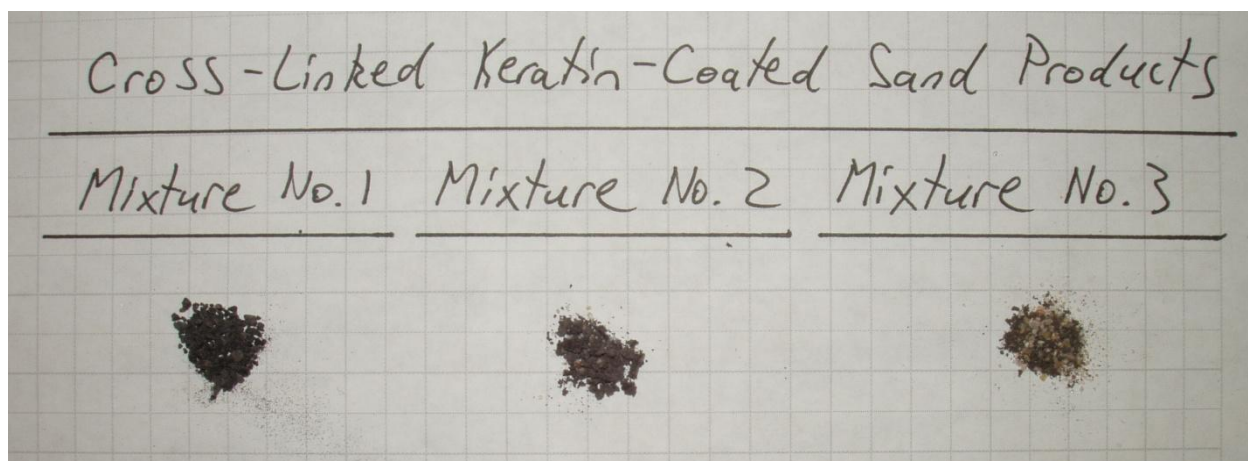 Cross-Linked Keratin-Coated Sand Products
Mixture No. 1 Mixture No. 2 Mixture No. 3